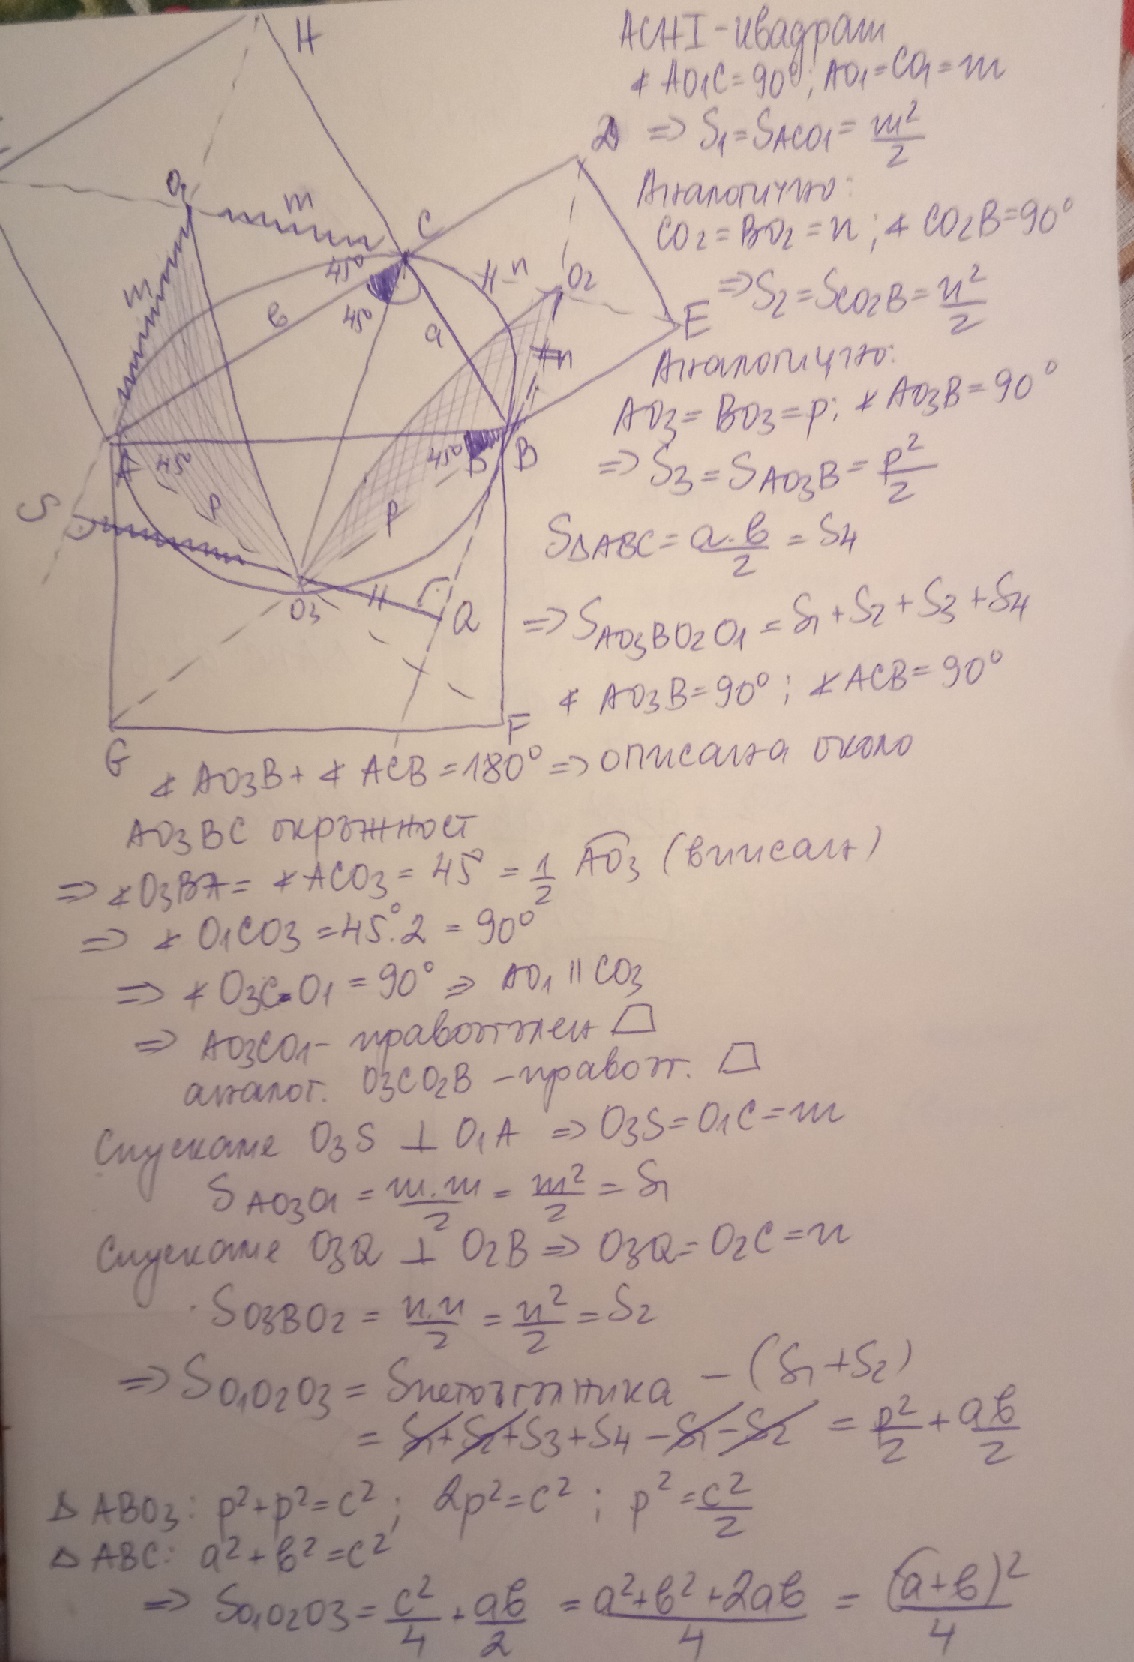 ACHI - квадрат
∢ AO1C = 90°; AO1 = CO1 = m
⇒ S1 = SACO1 = m²/2
Аналогично:
CO2 = BO2 = n; ∢ CO2B = 90°
⇒ S2 = SCO2B = n²/2
Аналогично:
AO3 = BO3 = p; ∢ AO3B = 90°
⇒ S3 = SAO3B = p²/2
SΔABC = a.b/2 = S4
⇒ SAO3BO2O1 = S1 + S2 + S3 + S4
∢ AO3B = 90°; ∢ ACB = 90°
H
D
O1
m
C
m
45°
45°
n
O2
E
в
a
n
A
45°
45°
B
B
S
p
p
O3
Q
G
F
∢ AO3B + ∢ ACB = 180° ⇒ описана около
AO3BC окръжност
⇒ ∢O3BA = ∢ACO3 = 45° = 1/2 AO3 (вписан)
⇒ ∢ O1CO3 = 45°.2 = 90°
⇒ ∢ O3CO1 = 90° ⇒ AO1 || CO3
⇒ AO3CO1 - правоъгълен ⏢
аналог. O3CO2B - правоъг. ⏢
Спускаме O3S ⊥ O1A ⇒ O3S = O1C = m
SAO3O1 = m.m/2 = m²/2 = S1
Спускаме O3Q ⊥ O2B ⇒ O3Q = O2C = n
SO3BO2 = n.n/2 = n²/2 = S2
⇒ SO1O2O3 = Sпетоъгълника - (S1 + S2)
= S1 + S2 + S3 + S4 - S1 - S2 = p²/2 + ав/2
Δ ABO3: p² + p² = c²; 2p² = c²; p² = c²/2
Δ ABC: a² + в² = c²
⇒ SO1O2O3 = c²/4 + ав/2 = a² + в² + 2ав/4 = (a+в)²/4